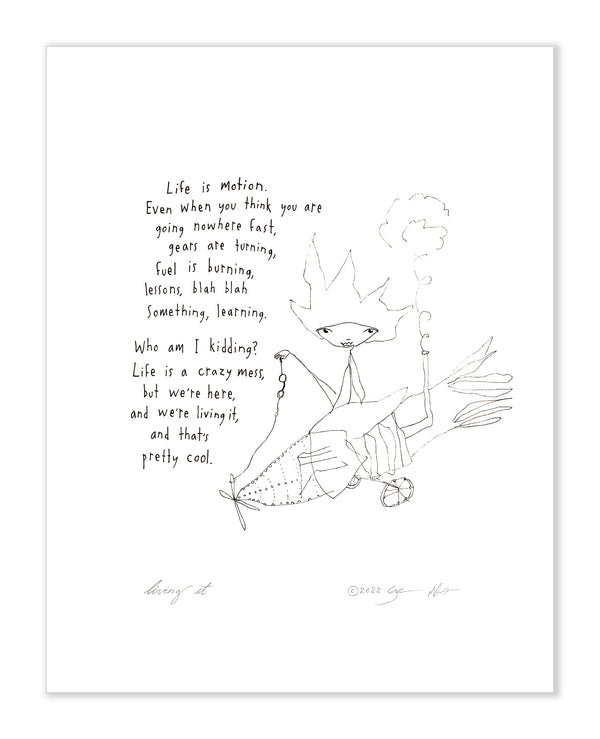 Life is motion.
Even when you think you are
going nowhere fast,
gears are turning,
fuel is burning,
lessons, blah blah
Something, learning.
Who am I kidding?
Life is a crazy mess,
but we're here,
and we're living it,
and that's
pretty cool.
living it
©2022